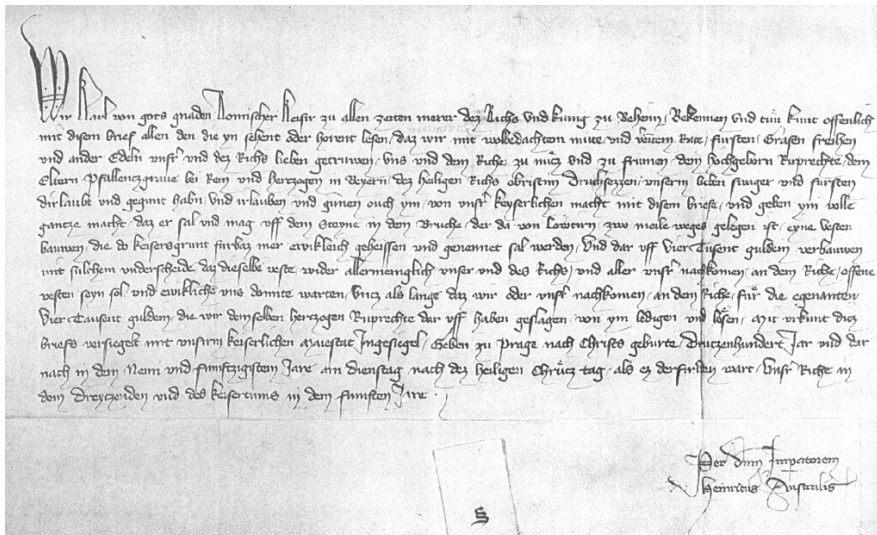 Wir Karl von gots gnaden Romischer Keisir zu allen zeiten merer dez Richs und kunig zu Beheim, Bekennen und tun kunt offenlich
mit disem brief allen den die yn sehent oder horent lesen, daz wir mit wolbedachtem mute, und Rate, fursten, Grafen freihen
und ander Edeln unsr und dez Richs lieben getruwen, uns und dem Riche zu nucz und zu frumen, dem hochgeborn Ruprechte, dem
Eltern Pfallenczgrave bei Rein und herczogen in Beyern, dez heiligen Richs obristin Druchsezzen, unserm lieben swager und fursten
dirlaubt und gegunt habn, und irlauben und gunnen ouch ym, von unsr keyserlichen macht mit disem briefe, und geben ym volle
gantze macht, daz er sal und mag uff dem Steyne in dem Bruche, der da von zwo meile weges gelegen ist, eyne vesten
bauwen, die do keisersgrunt furbaz mer ewikleich geheissen und genennet sal werden, Und dar uff Vier Tusent guldein verbauwen
mit sulchem underscheide, daz dieselbe veste, wider allermeniglich unser und des Richs, und aller unsr nachkomen, an dem Riche, offene
vesten seyn sol, und ewikliche uns domite warten, Uncz als lange daz wir oder unsr nachkomen, an dem Riche, fur die egenanten
Vier Tausent guldein, die wir demselben herczogen Ruprechte dar uff haben geslagen, von ym ledigen und losen, Mit urkunt dicz
briefs versigelt mit unsrm keiserlichen Maiestat Ingesigel, Geben zu Prage nach Christs geburte, Druczenhundert Jar und dar
nach in dem Neun und funfczigistem Jare, am dienstag, nach dez heiligen Chrucz tag, als ez derfunden wart, Unsr Riche in
dem dreyczenden und des keisertums in dem funften Jare.
Per dnm Imperatorem
Heinricus Australis